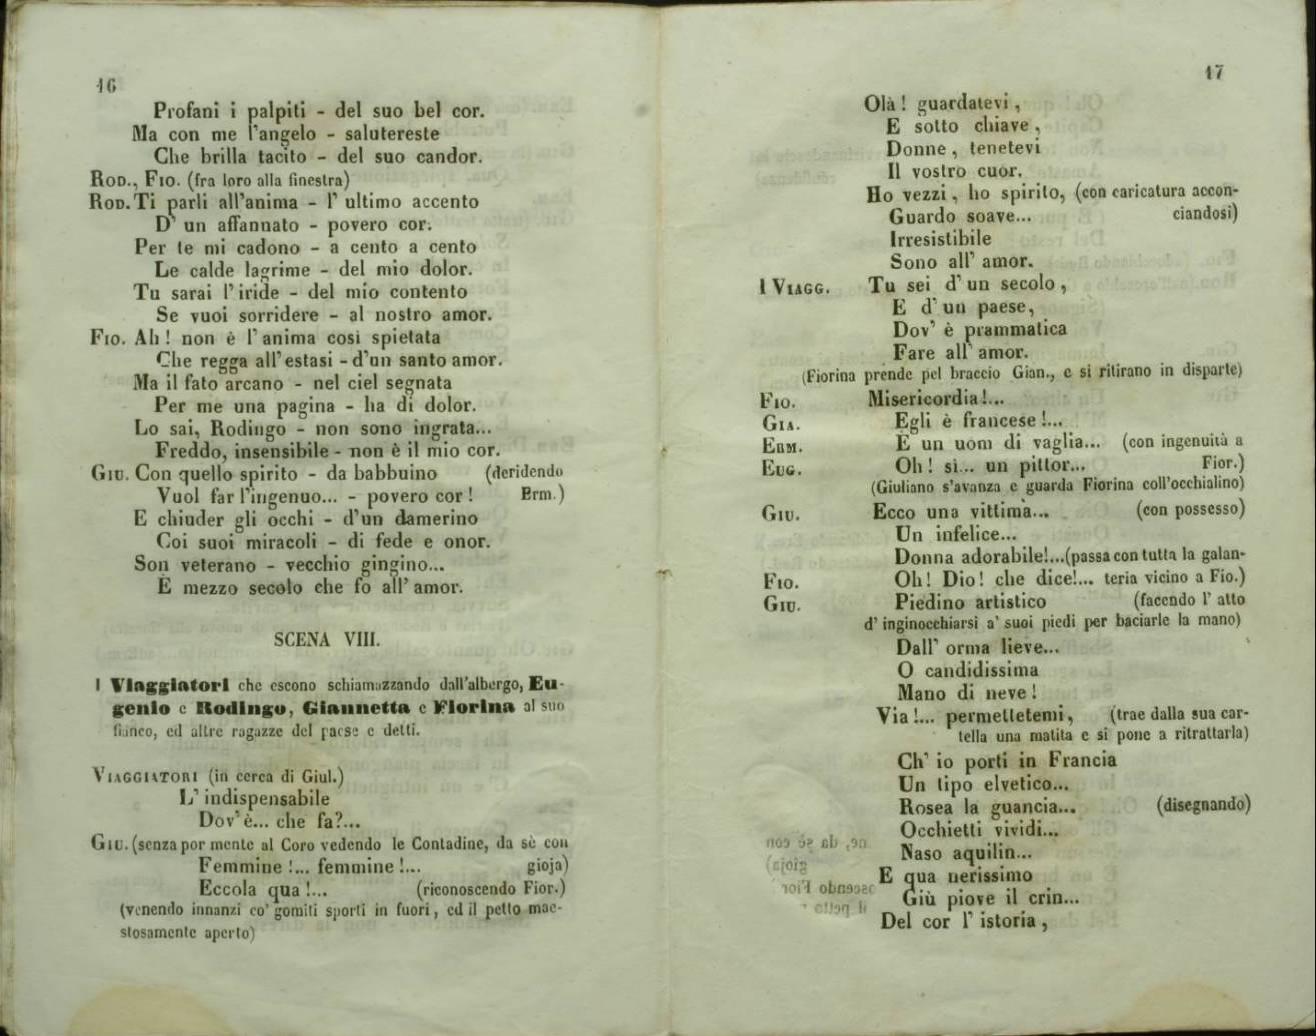 16
Profani i palpiti - del suo bel cor.
Ma con me l'angelo - salutereste
Che brilla tacito - del suo candor.
ROD., FIO. (fra loro alla finestra)
ROD. Ti parli all'anima - l' ultimo accento
D' un affannato - povero cor.
Per te mi cadono - a cento a cento
Le calde lagrime - del mio dolor.
Tu sarai l' iride - del mio contento
Se vuoi sorridere - al nostro amor.
FIO. Ah! non è l' anima così spietata
Che regga all' estasi - d'un santo amor.
Ma il fato arcano - nel ciel segnata
Per me una pagina - ha di dolor.
Lo sai, Rodingo - non sono ingrata...
Freddo, insensibile - non è il mio cor.
GIU. Con quello spirito - da babbuino (deridendo
Vuol far l'ingenuo... - povero cor! Erm.)
E chiuder gli occhi - d'un damerino
Coi suoi miracoli - di fede e onor.
Son veterano - vecchio gingino...
È mezzo secolo che fo all' amor.
SCENA VIII.
I Viaggiatori che escono schiamazzando dall'albergo, Eu-
genio e Rodingo, Giannetta e Fiorina al suo
fianco, ed altre ragazze del paese e detti.
VIAGGIATORI (in cerca di Giul.)
L' indispensabile
Dov' è... che fa?...
GIU. (senza por mente al Coro vedendo le Contadine, da sè con
Femmine!... femmine!... gioja)
Eccola qua!... (riconoscendo Fior.)
(venendo innanzi co' gomiti sporti in fuori, ed il petto mae-
stosamente aperto)
17
Olà! guardatevi,
E sotto chiave,
Donne, tenetevi
Il vostro cuor.
Ho vezzi, ho spirito, (con caricatura accon-
Guardo soave... ciandosi)
Irresistibile
Sono all' amor.
I VIAGG. Tu sei d' un secolo,
E d' un paese,
Dov' è prammatica
Fare all' amor.
(Fiorina prende pel braccio Gian., e si ritirano in disparte)
FIO. Misericordia!...
GIA. Egli è francese!...
ERM. È un uom di vaglia... (con ingenuità a
EUG. Oh! sì... un pittor... Fior.)
(Giuliano s'avanza e guarda Fiorina coll'occhialino)
GIU. Ecco una vittima... (con possesso)
Un infelice...
Donna adorabile!...(passa con tutta la galan-
FIO. Oh! Dio! che dice!... teria vicino a Fio.)
GIU. Piedino artistico (facendo l' atto
d' inginocchiarsi a' suoi piedi per baciarle la mano)
Dall' orma lieve...
O candidissima
Mano di neve!
Via!... permettetemi, (trae dalla sua car-
tella una matita e si pone a ritrattarla)
Ch' io porti in Francia
Un tipo elvetico...
Rosea la guancia... (disegnando)
Occhietti vividi...
Naso aquilin...
E qua nerissimo
Giù piove il crin...
Del cor l' istoria,